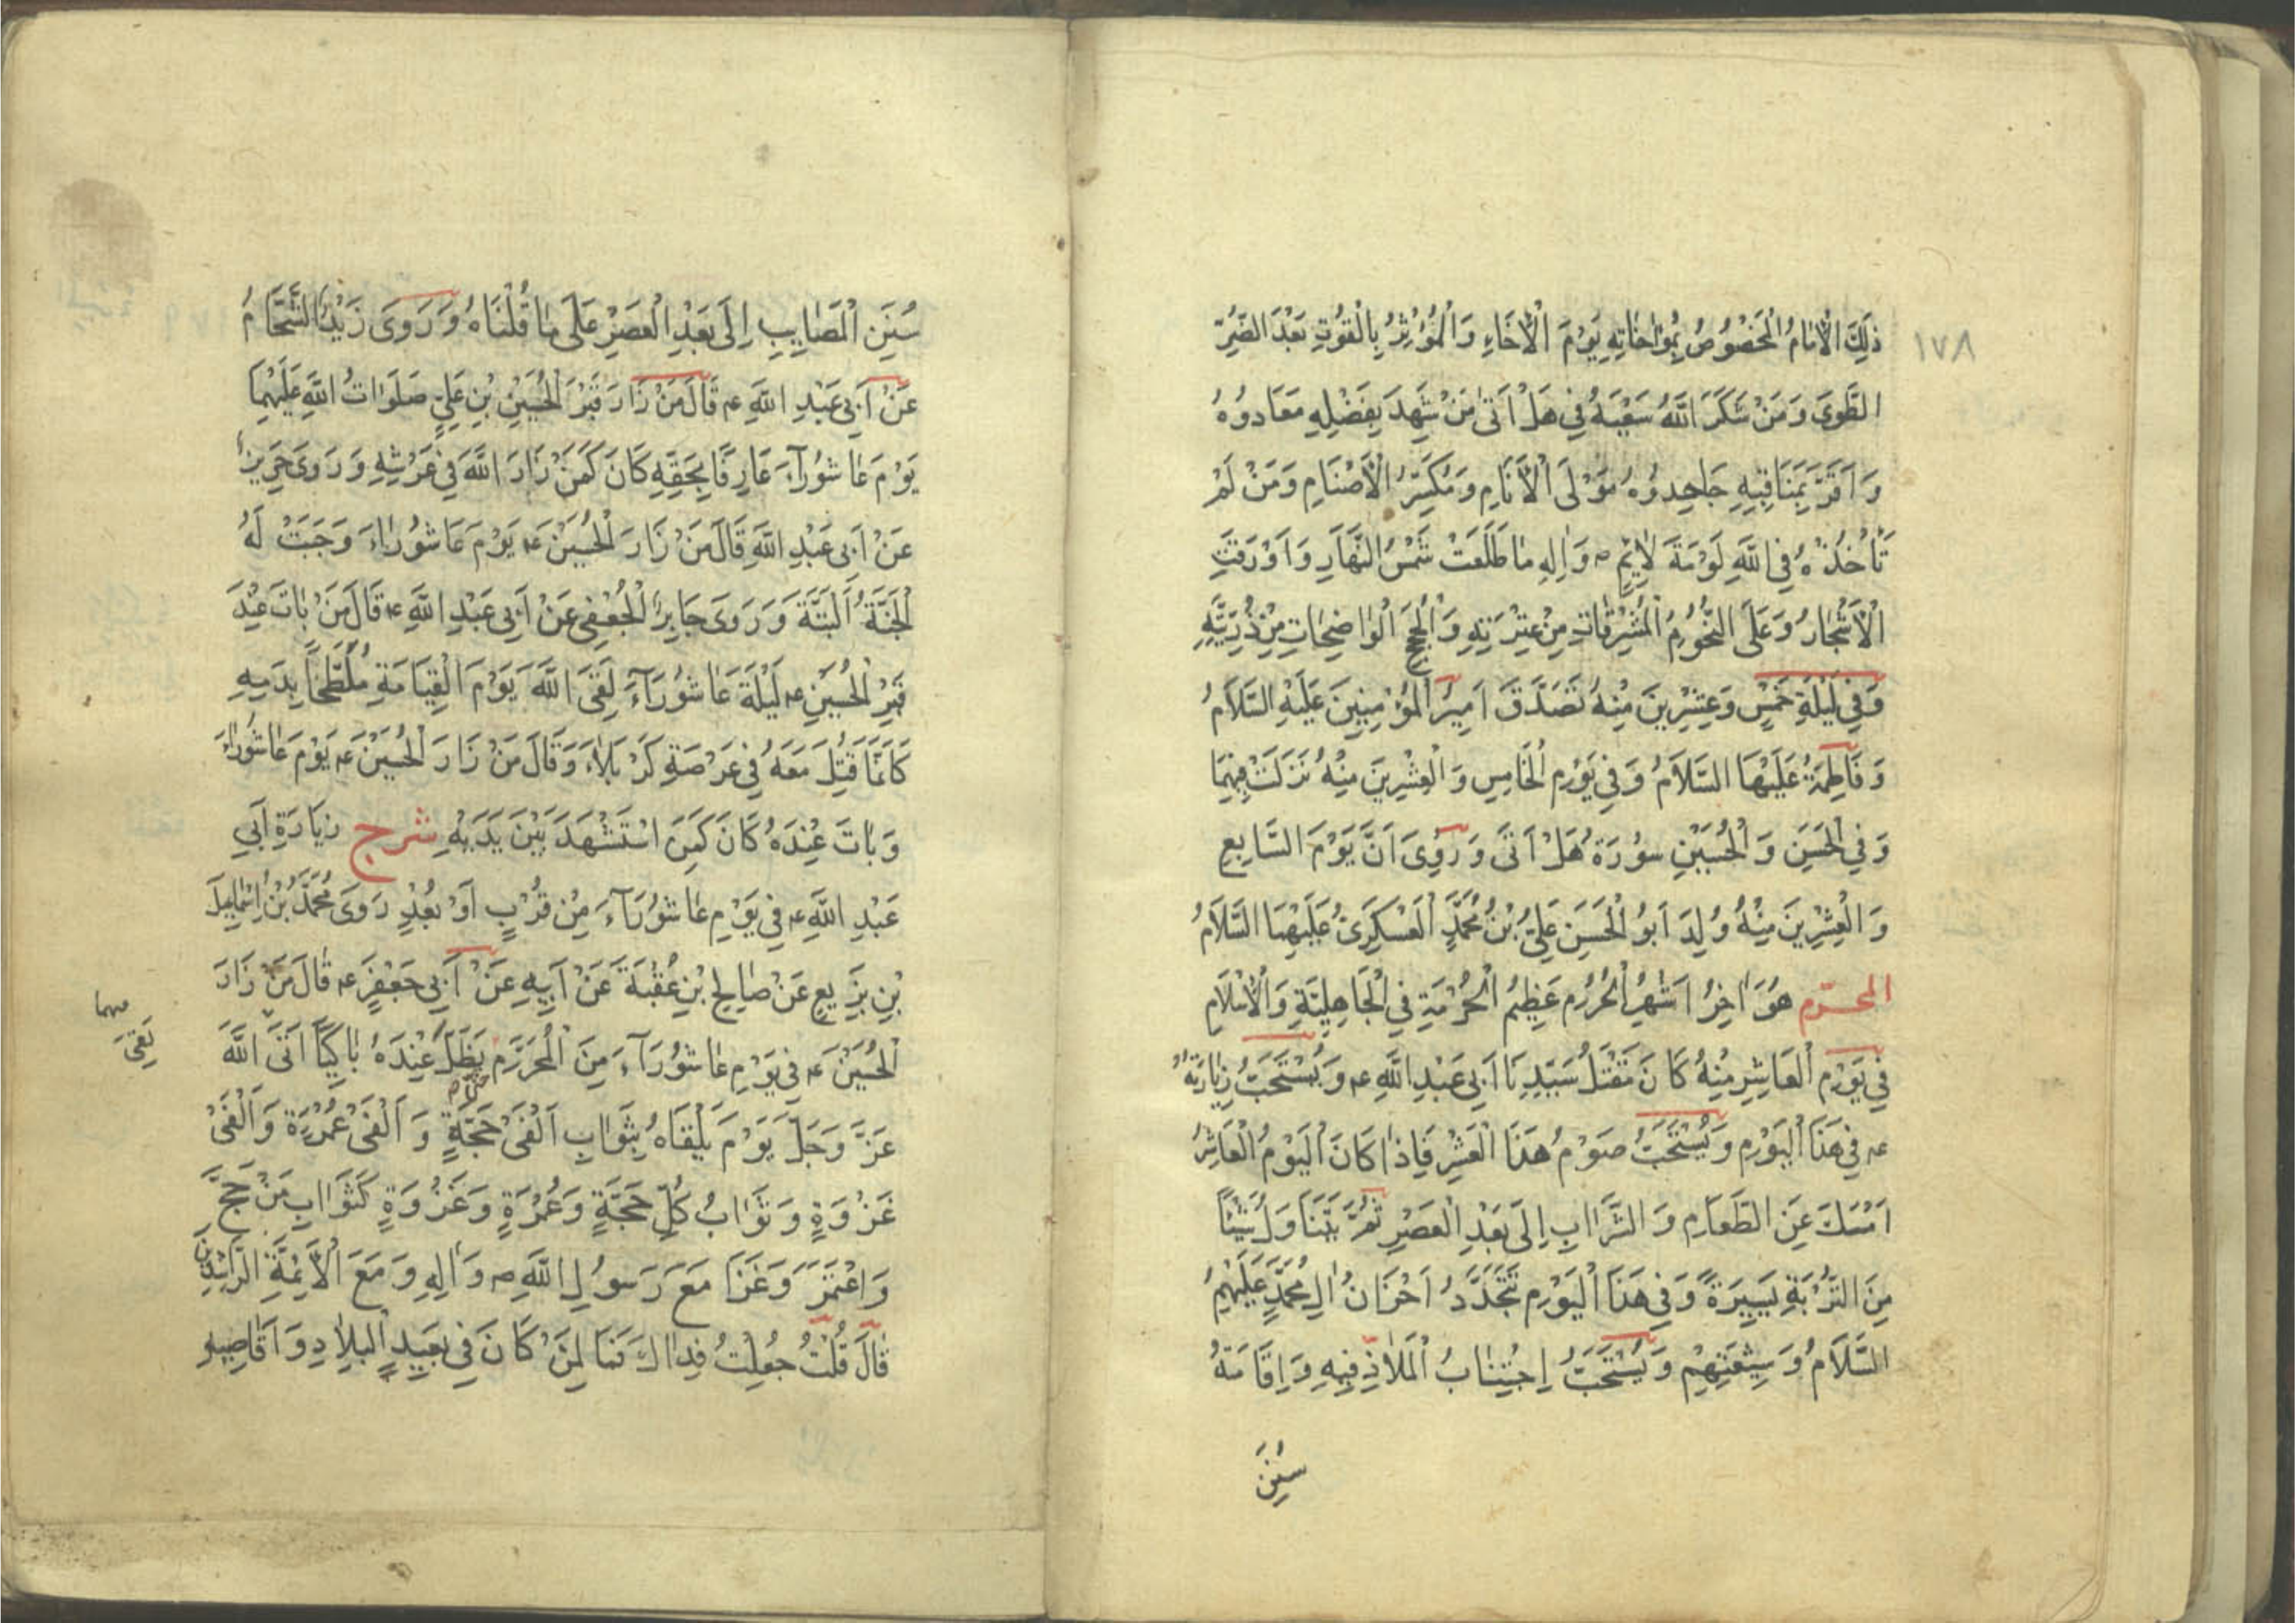 ١٧٨
ذٰلِكَ الْاِمَامُ الْمَخْصُوصُ بِمُوٰاخَاتِهِ يَوْمَ الْاِخَاءِ وَالْمُؤْثِرُ بِالْقُوتِ بَعْدَ الضُّرِّ
الطَّوىَ وَمَنْ شَكَرَ اللّٰهُ سَعْيَهُ فِي هَلْ اَتىٰ مَنْ شَهِدَ بِفَضْلِهِ مَعَادُوهُ
وَاَقَرَّ بِمَنَاقِبِهِ جَاحِدُوهُ مَوْلَى الْاَنَامِ وَمُكَسِّرُ الْاَصْنَامِ وَمَنْ لَمْ
تَأْخُذْهُ فِي اللّٰهِ لَوْمَةَ لٰائِمٍ ص وَاٰلِهِ مٰا طَلَعَتْ شَمْسُ النَّهَارِ وَاَوْرَقَتِ
الْاَشْجَارُ وَعَلَى النُّجُومِ الْمُشْرِقَاتِ مِنْ عِتْرَتِهِ وَالْحُجَجِ الْوٰاضِحَاتِ مِنْ ذُرِّيَّتِهِ
وَفِي لَيْلَةِ خَمْسٍ وَعِشْرِينَ مِنْهُ تَصَدَّقَ اَمِيرُ الْمُؤْمِنِينَ عَلَيْهِ السَّلَامُ
وَفَاطِمَةُ عَلَيْهَا السَّلَامُ وَفِي يَوْمِ الْخَامِسِ وَالْعِشْرِينَ مِنْهُ نَزَلَتْ فِيهِمَا
وَفِي الْحَسَنِ وَالْحُسَيْنِ سُورَةُ هَلْ اَتىٰ وَرُوِىَ اَنَّ يَوْمَ السَّابِعِ
وَالْعِشْرِينَ مِنْهُ وُلِدَ اَبُو الْحَسَنِ عَلِيُّ بْنُ مُحَمَّدٍ الْعَسْكَرِيُّ عَلَيْهِمَا السَّلَامُ
المحرّم هُوَ اٰخِرُ اَشْهُرِ الْحُرُمِ عَظِيمُ الْحُرْمَةِ فِي الْجَاهِلِيَّةِ وَالْاِسْلَامِ
فِي يَوْمِ الْعَاشِرِ مِنْهُ كَانَ مَقْتَلُ سَيِّدِنَا اَبِي عَبْدِ اللّٰهِ ع وَيُسْتَحَبُّ زِيَارَتُهُ
ع فِي هَذَا الْيَوْمِ وَيُسْتَحَبُّ صَوْمُ هَذَا الْعَشْرِ فَاِذَا كَانَ الْيَوْمُ الْعَاشِرُ
اَمْسَكَ عَنِ الطَّعَامِ وَالشَّرَابِ اِلَى بَعْدِ الْعَصْرِ ثُمَّ يَتَنَاوَلُ شَيْئًا
مِنَ التُّرْبَةِ يَسِيرَةً وَفِي هَذَا الْيَوْمِ تَتَجَدَّدُ اَحْزَانُ اٰلِ مُحَمَّدٍ عَلَيْهِمُ
السَّلَامُ وَشِيعَتِهِمْ وَيُسْتَحَبُّ اِجْتِنَابُ الْمَلَاذِّ فِيهِ وَاِقَامَةُ
سُنَنِ
سُنَنِ الْمَصَايِبِ اِلَى بَعْدِ الْعَصْرِ عَلَى مَا قُلْنَاهُ وَرَوىَ زَيْدُ الشَّحَّامُ
عَنْ اَبِي عَبْدِ اللّٰهِ ع قَالَ مَنْ زَارَ قَبْرَ الْحُسَيْنِ بْنِ عَلِيٍّ صَلَوَاتُ اللّٰهِ عَلَيْهِمَا
يَوْمَ عَاشُورَآءَ عَارِفًا بِحَقِّهِ كَانَ كَمَنْ زَارَ اللّٰهَ فِي عَرْشِهِ وَرَوىَ حَرِيزٌ
عَنْ اَبِي عَبْدِ اللّٰهِ قَالَ مَنْ زَارَ الْحُسَيْنَ ع يَوْمَ عَاشُورَاءَ وَجَبَتْ لَهُ
الْجَنَّةُ الْبَتَّةَ وَرَوىَ جَابِرُ الْجُعْفِي عَنْ اَبِي عَبْدِ اللّٰهِ ع قَالَ مَنْ بَاتَ عِنْدَ
قَبْرِ الْحُسَيْنِ ع لَيْلَةَ عَاشُورَآءَ لَقِىَ اللّٰهَ يَوْمَ الْقِيَامَةِ مُلَطَّخًا بِدَمِهِ
كَاَنَّمَا قُتِلَ مَعَهُ فِي عَرْصَةِ كَرْبَلَاءَ وَقَالَ مَنْ زَارَ الْحُسَيْنَ ع يَوْمَ عَاشُورَاءَ
وَبَاتَ عِنْدَهُ كَانَ كَمَنِ اسْتَشْهَدَ بَيْنَ يَدَيْهِ شرح زِيَارَةِ اَبِي
عَبْدِ اللّٰهِ ع فِي يَوْمِ عَاشُورَآءَ مِنْ قُرْبٍ اَوْ بُعْدٍ رَوىَ مُحَمَّدُ بْنُ اِسْمٰاعِيلَ
بْنِ بَزِيعٍ عَنْ صَالِحِ بْنِ عُقْبَةَ عَنْ اَبِيهِ عَنْ اَبِي جَعْفَرٍ ع قَالَ مَنْ زَارَ
الْحُسَيْنَ ع فِي يَوْمِ عَاشُورَآءَ مِنَ الْمُحَرَّمِ يَظَلَّ عِنْدَهُ بَاكِيًا اَتَى اللّٰهَ
لَقِىَ
عَزَّ وَجَلَّ يَوْمَ يَلْقَاهُ بِثَوَابِ اَلْفَىْ حَجَّةٍ وَاَلْفَىْ عُمْرَةٍ وَاَلْفَىْ
غَزْوَةٍ وَثَوَابُ كُلِّ حَجَّةٍ وَعُمْرَةٍ وَغَزْوَةٍ كَثَوَابِ مَنْ حَجَّ
وَاعْتَمَرَ وَغَزَا مَعَ رَسُولِ اللّٰهِ ص وَاٰلِهِ وَمَعَ الْاَئِمَّةِ الرَّاشِدِينَ
قَالَ قُلْتُ جُعِلْتُ فِدَاكَ فَمَا لِمَنْ كَانَ فِي بَعِيدِ الْبِلَادِ وَاَقَاصِيهِ